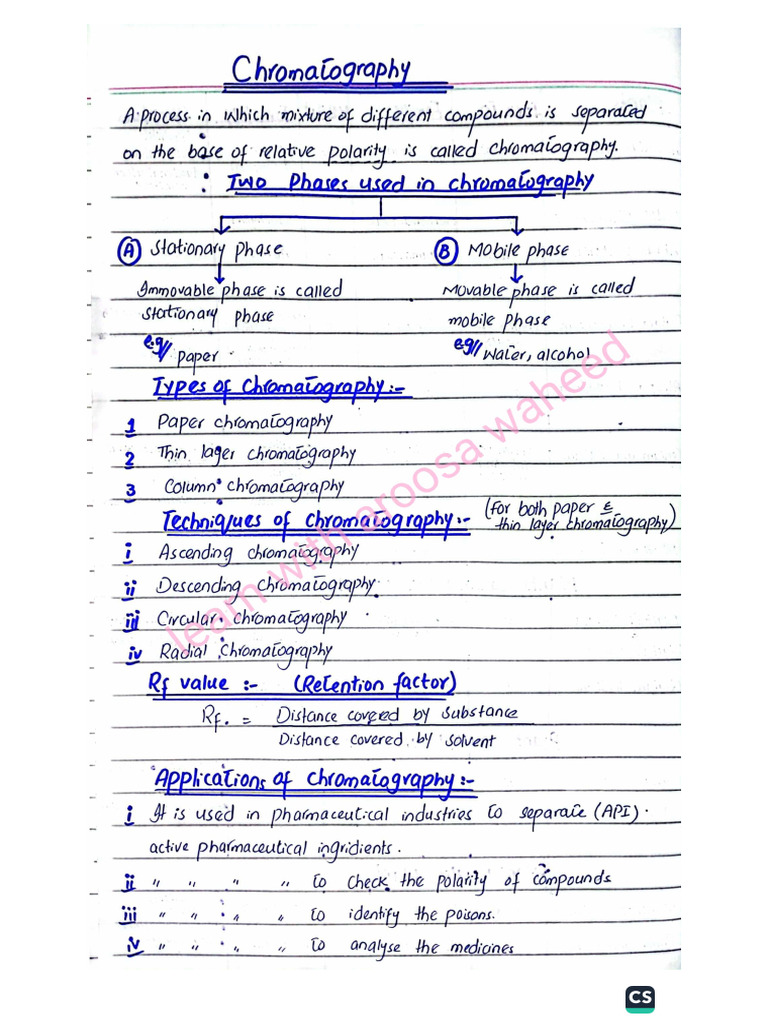 Chromatography
A process in which mixture of different compounds is separated
on the base of relative polarity is called chromatography.
: Two Phases used in chromatography
A Stationary phase
B Mobile phase
Immovable phase is called
Movable phase is called
stationary phase
mobile phase
e.g// paper
e.g// water, alcohol
Types of Chromatography:-
1 Paper chromatography
2 Thin layer chromatography
3 Column chromatography
Techniques of chromatography:- (for both paper &
thin layer chromatography)
i Ascending chromatography
ii Descending chromatography
iii Circular chromatography
iv Radial chromatography
Rf value :- (Retention factor)
Rf. = Distance covered by substance
Distance covered by solvent
Applications of chromatography:-
i It is used in pharmaceutical industries to separate (API).
active pharmaceutical ingridients.
ii " " " " to check the polarity of compounds
iii " " " " to identify the poisons.
iv " " " " to analyse the medicines
learn with aroosa waheed
CS